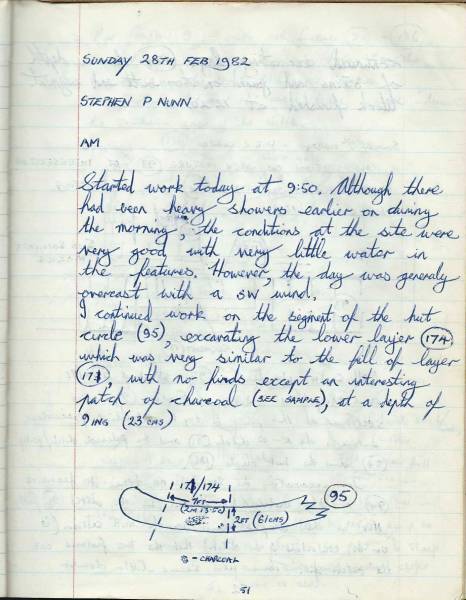 SUNDAY 28TH FEB 1982
STEPHEN P NUNN
AM
Started work today at 9:50. Although there
had been heavy showers earlier on during
the morning, the conditions at the site were
very good with very little water in
the features. However, the day was generaly
overcast with a SW wind.
I continued work on the segment of the hut
circle (95), excavating the lower layer 174
which was very similar to the fill of layer
173, with no finds except an interesting
patch of charcoal (SEE SAMPLE), at a depth of
9 INS (23 CMS)
173/174
7FT
2FT (61CMS)
95
- CHARCOAL
51